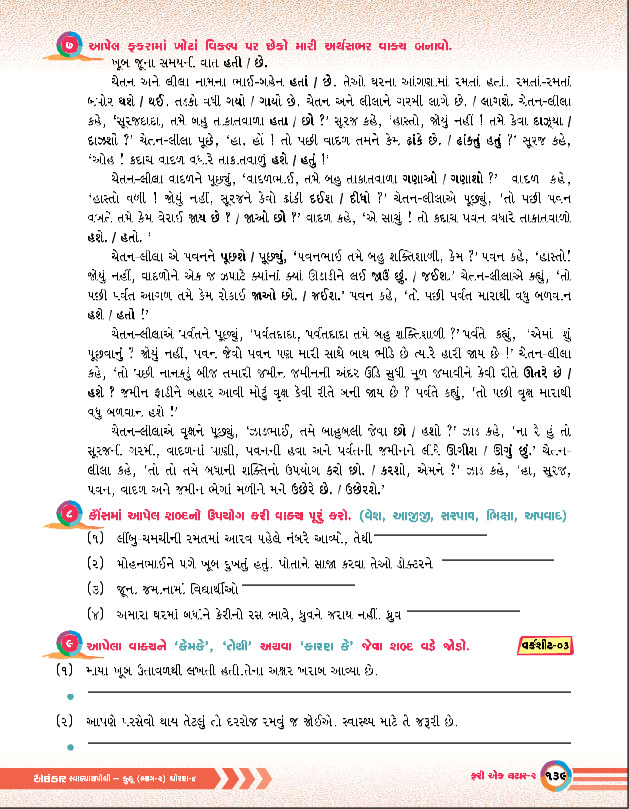 ૭ આપેલ ફકરામાં ખોટાં વિકલ્પ પર છેકો મારી અર્થસભર વાક્ય બનાવો.
ખૂબ જૂના સમયની વાત હતી / છે.
ચેતન અને લીલા નામના ભાઈ-બહેન હતાં / છે. તેઓ ઘરના આંગણામાં રમતાં હતાં. રમતાં-રમતાં
બપોર થશે / થઈ. તડકો વધી ગયો / ગાયો છે. ચેતન અને લીલાને ગરમી લાગે છે. / લાગશે. ચેતન-લીલા
કહે, ‘સૂરજદાદા, તમે બહુ તાકાતવાળા હતા / છો ?’ સૂરજ કહે, ‘હાસ્તો, જોયું નહીં ! તમે કેવા દાઝ્યા /
દાઝશો ?’ ચેતન-લીલા પૂછે, ‘હા, હોં ! તો પછી વાદળ તમને કેમ ઢાંકે છે. / ઢાંકતું હતું ?’ સૂરજ કહે,
‘ઓહ ! કદાચ વાદળ વધારે તાકાતવાળું હશે / હતું !’
ચેતન-લીલા વાદળને પૂછ્યું, ‘વાદળભાઈ, તમે બહુ તાકાતવાળા ગણાઓ / ગણાશો ?’ વાદળ કહે,
‘હાસ્તો વળી ! જોયું નહીં, સૂરજને કેવો ઢાંકી દઈશ / દીધો ?’ ચેતન-લીલાએ પૂછ્યું, ‘તો પછી પવન
વખતે તમે કેમ વેરાઈ જાય છે ? / જાઓ છો ?’ વાદળ કહે, ‘એ સાચું ! તો કદાચ પવન વધારે તાકાતવાળો
હશે. / હતો. ’
ચેતન-લીલા એ પવનને પૂછશે / પૂછ્યું, ‘પવનભાઈ તમે બહુ શક્તિશાળી, કેમ ?’ પવન કહે, ‘હાસ્તો!
જોયું નહીં, વાદળોને એક જ ઝપાટે ક્યાંનાં ક્યાં ઊડાડીને લઈ જાઉં છું. / જઈશ.’ ચેતન-લીલાએ કહ્યું, ‘તો
પછી પર્વત આગળ તમે કેમ રોકાઈ જાઓ છો. / જઈશ.’ પવન કહે, ‘તો પછી પર્વત મારાથી વધુ બળવાન
હશે / હતો !’
ચેતન-લીલાએ પર્વતને પૂછ્યું, ‘પર્વતદાદા, પર્વતદાદા તમે બહુ શક્તિશાળી ?’ પર્વતે કહ્યું, ‘એમાં શું
પૂછવાનું ? જોયું નહીં, પવન જેવો પવન પણ મારી સાથે બાથ ભીડે છે ત્યારે હારી જાય છે !’ ચેતન-લીલા
કહે, ‘તો પછી નાનકડું બીજ તમારી જમીન જમીનની અંદર ઉંડે સુધી મૂળ જમાવીને કેવી રીતે ઊતરે છે /
હશે ? જમીન ફાડીને બહાર આવી મોટું વૃક્ષ કેવી રીતે બની જાય છે ? પર્વતે કહ્યું, ‘તો પછી વૃક્ષ મારાથી
વધુ બળવાન હશે !’
ચેતન-લીલાએ વૃક્ષને પૂછ્યું, ‘ઝાડભાઈ, તમે બાહુબલી જેવા છો / હશો ?’ ઝાડ કહે, ‘ના રે હું તો
સૂરજની ગરમી, વાદળનાં પાણી, પવનની હવા અને પર્વતની જમીનને લીધે ઊગીશ / ઊગું છું.’ ચેતન-
લીલા કહે, ‘તો તો તમે બધાની શક્તિનો ઉપયોગ કરો છો. / કરશો, એમને ?’ ઝાડ કહે, ‘હા, સૂરજ,
પવન, વાદળ અને જમીન ભેગાં મળીને મને ઉછેરે છે. / ઉછેરશે.’
૮ કૌંસમાં આપેલ શબ્દનો ઉપયોગ કરી વાક્ય પૂરું કરો. (વેશ, આજીજી, સરપાવ, ભિક્ષા, અપવાદ)
(૧) લીંબુ-ચમચીની રમતમાં આરવ પહેલે નંબરે આવ્યો, તેથી
(૨) મોહનભાઈને પગે ખૂબ દુખતું હતું. પોતાને સાજા કરવા તેઓ ડોક્ટરને
(૩) જૂના જમાનામાં વિદ્યાર્થીઓ
(૪) અમારા ઘરમાં બધાંને કેરીનો રસ ભાવે, ધ્રુવને જરાય નહીં. ધ્રુવ
૯ આપેલા વાક્યને ‘કેમકે’, ‘તેથી’ અથવા ‘કારણ કે’ જેવા શબ્દ વડે જોડો.
વર્કશીટ-૦૩
(૧) માયા ખૂબ ઉતાવળથી લખતી હતી.તેના અક્ષર ખરાબ આવ્યા છે.
(૨) આપણે પરસેવો થાય તેટલું તો દરરોજ રમવું જ જોઈએ. સ્વાસ્થ્ય માટે તે જરૂરી છે.
સ્વાધ્યાયપોથી – કુહૂ (ભાગ-૨) ધોરણ-૪
ફરી એક વટાર-૨ ૧૩૯